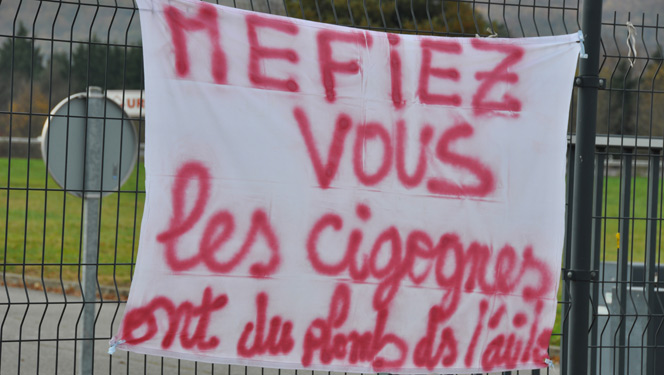 MEFiEZ
VOUS
les cigognes
ont du plomb ds l'aile
UR